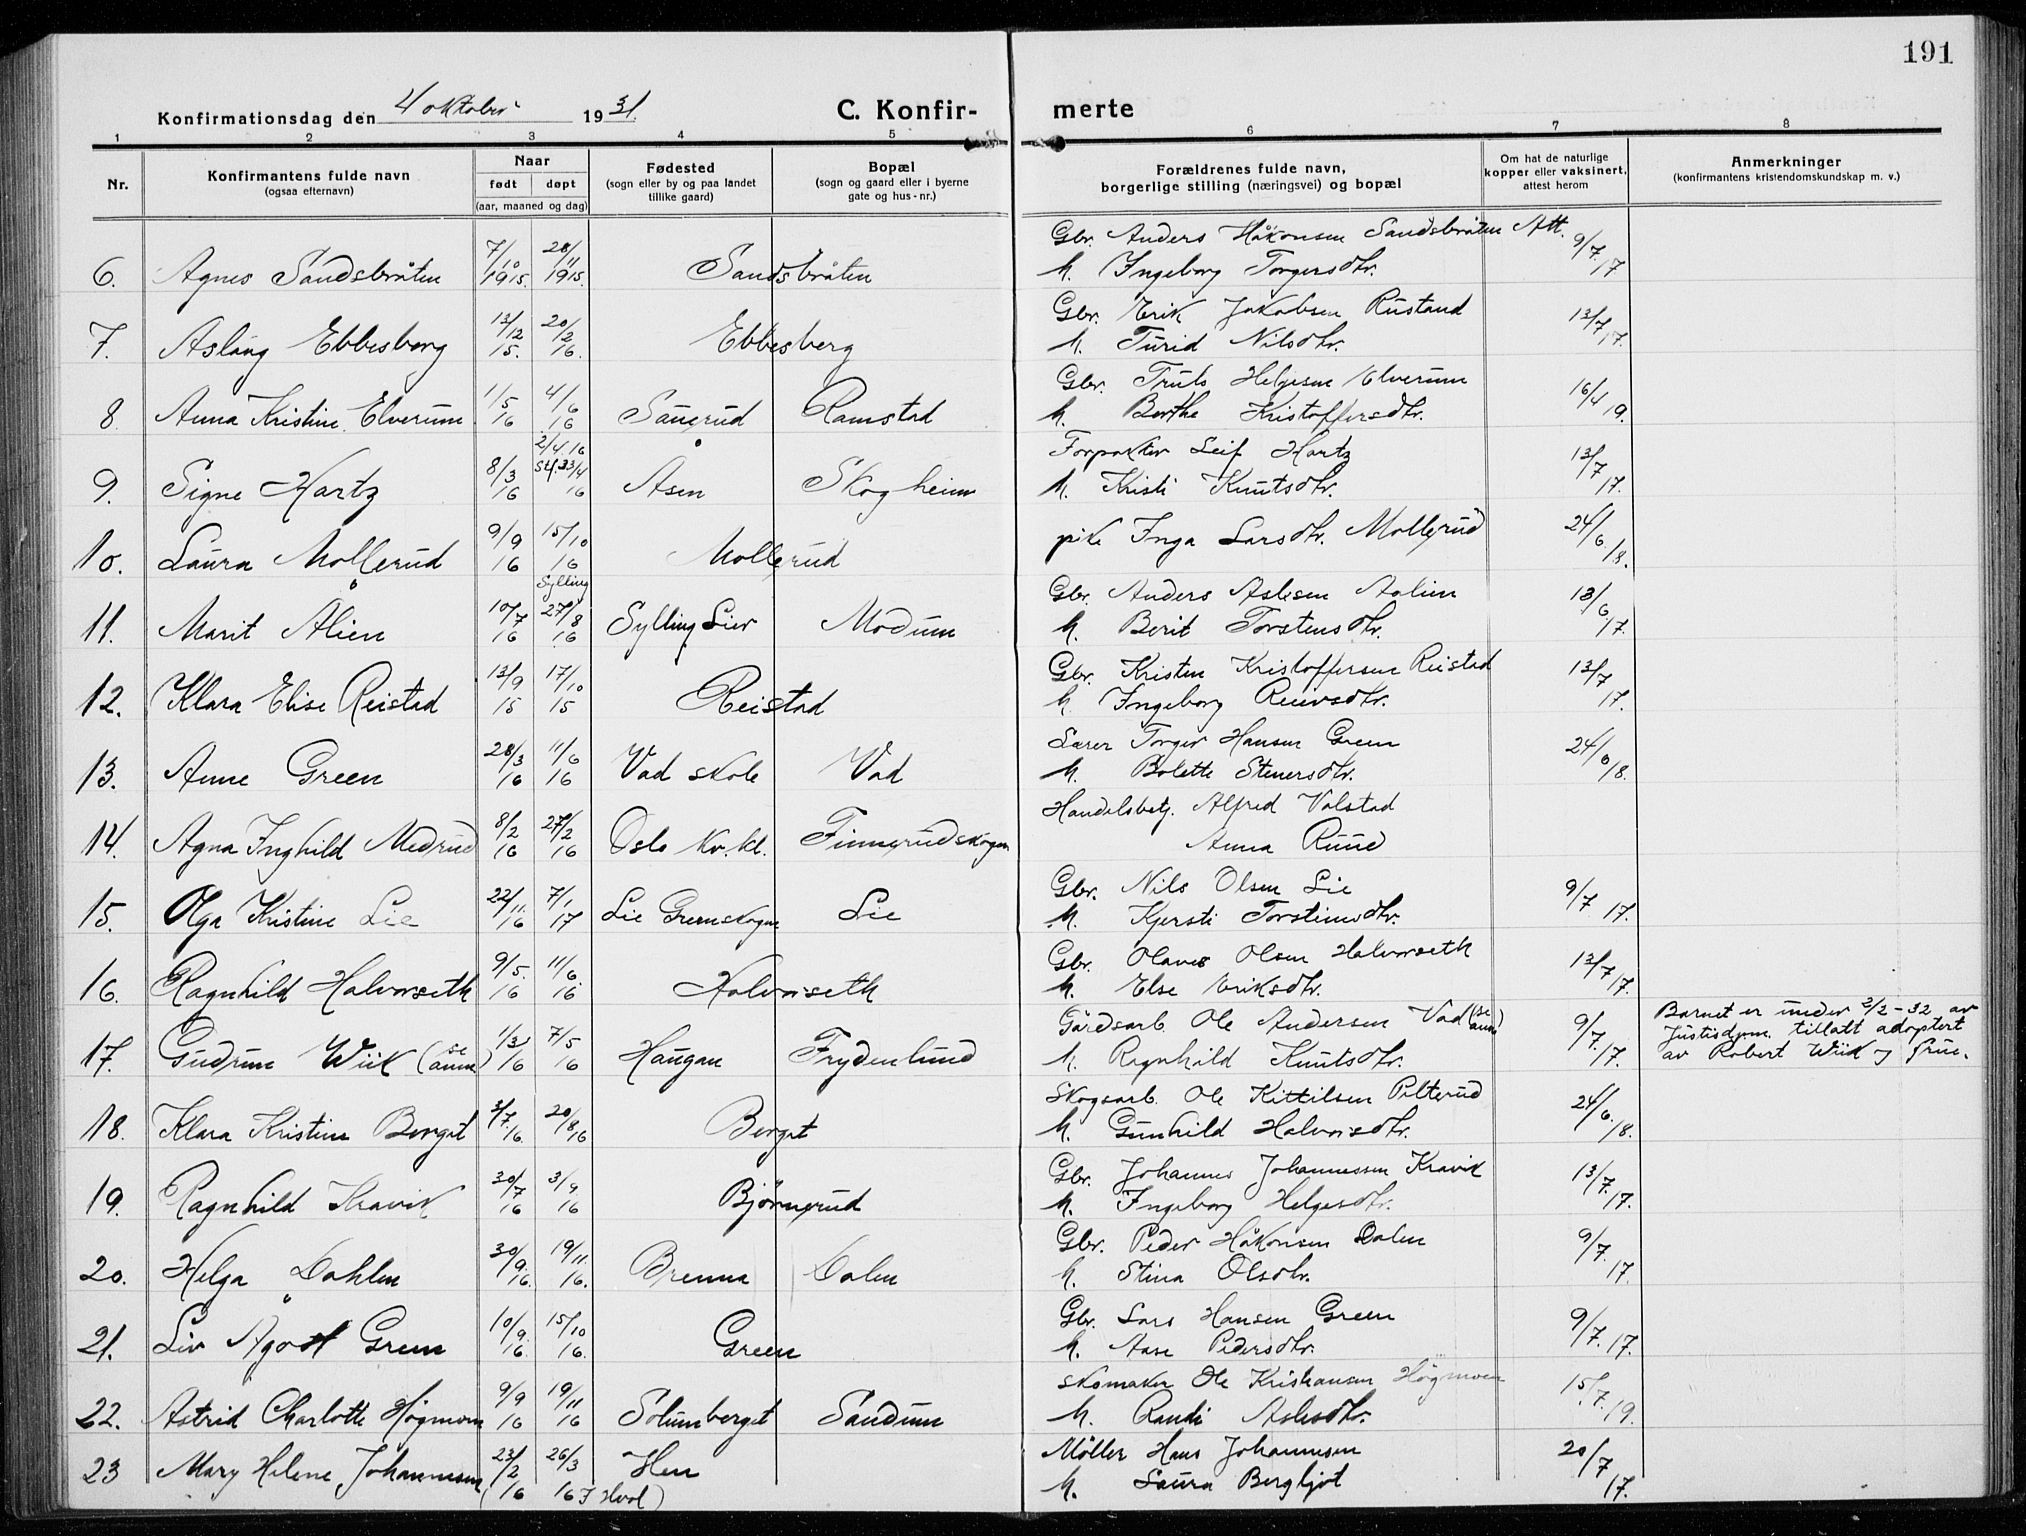 191
Konfirmationsdag den 4 oktober 1931.
C. Konfir-
merte
1 2 3 4 5 6 7 8
Nr.
Konfirmantens fulde navn
(ogsaa efternavn)
Naar
født døpt
(aar, maaned og dag)
Fødested
(sogn eller by og paa landet
tillike gaard)
Bopæl
(sogn og gaard eller i byerne
gate og hus-nr.)
Forældrenes fulde navn,
borgerlige stilling (næringsvei) og bopæl
Om hat de naturlige
kopper eller vaksinert,
attest herom
Anmerkninger
(konfirmantens kristendomskundskap m. v.)
Gbr. Anders Håkonsen Sandsbråten Att. 9/7 17
6. Agnes Sandsbråten 7/10 1915. 28/11 1915. Sandsbråten h. Ingeborg Torgersdtr.
Gbr. Erik Jakobsen Rustand 13/7 17.
7. Aslaug Ebbesberg 13/12 15. 20/2 16. Ebbesberg h. Turid Nilsdtr.
Gbr. Truls Helgesen Elverum 16/4 19.
8. Anna Kristine Elverum 1/5 16 4/6 16 Saugrud Ramstad h. Berthe Kristoffersdtr.
2/4 16
Forpakter Leif Hartz 13/7 17.
9. Signe Hartz 8/3 16 Stf. 23/4 16 Åsen Skogheim h. Kristi Knutsdtr.
10. Laura Mollerud 9/9 16 15/10 16 Mollerud pike Inga Larsdtr. Mollerud 24/6 18.
Sylling
Gbr. Anders Aslesen Aalien 13/6 17.
11. Marit Ålien 10/7 16 27/8 16 Sylling Lier Modum h. Berit Torstensdtr.
Gbr. Kristen Kristoffersen Reistad 13/7 17.
12. Klara Elise Reistad 13/9 15 17/10 15 Reistad h. Ingeborg Reiersdtr.
Lærer Torger Hansen Green 24/6 18.
13. Anne Green 28/3 16 11/6 16 Vad skole Vad h. Bolette Stenersdtr.
Handelsbetj. Alfred Volstad
14. Agna Inghild Medrud 8/2 16 27/2 16 Oslo kv. kl. Finnerudskogen Anna Ruud
Gbr. Nils Olsen Lie 9/7 17.
15. Olga Kristine Lie 22/11 16 7/1 17 Lie Grenskogen Lie h. Kjersti Torstensdtr.
Gbr. Olaves Olsen Halvorseth 13/7 17.
16. Ragnhild Halvorseth 9/5 16 11/6 16 Halvorseth h. Else Eriksdtr.
Gårdsarb. Ole Andersen Vad (se anm) 9/7 17.
17. Gudrun Wiik (se anm) 1/3 16 7/5 16 Haugan Frydenlund h. Ragnhild Knutsdtr.
Barnet er under 2/2-32 av
Justisdpm. tillatt adoptert
av Robert Wiik og frue.
Skogsarb. Ole Kittilsen Pilterud 24/6 18.
18. Klara Kristine Berget 3/7 16 20/8 16 Berget h. Gunhild Halvorsdtr.
Gbr. Johannes Johannessen Kravik 13/7 17.
19. Ragnhild Kravik 30/7 16 3/9 16 Bjørnerud h. Ingeborg Helgesdtr.
Gbr. Peder Håkonsen Dalen 9/7 17.
20. Helga Dahlen 30/9 16. 19/11 16. Brenna Dalen h. Stina Olsdtr.
Gbr. Lars Hansen Green 9/7 17.
21. Liv Ågot Green 10/9 16. 15/10 16. Green h. Aase Pedersdtr.
Skomaker Ole Kristiansen Høgmoen 15/7 19.
22. Astrid Charlotte Høgmoen 9/9 16 19/11 16 Solumberget Sandum h. Randi Aslesdtr.
Møller Hans Johannesen 20/7 17.
23 Mary Helene Johannesen 23/2 16 26/3 16 Hen h. Laura Bergljot